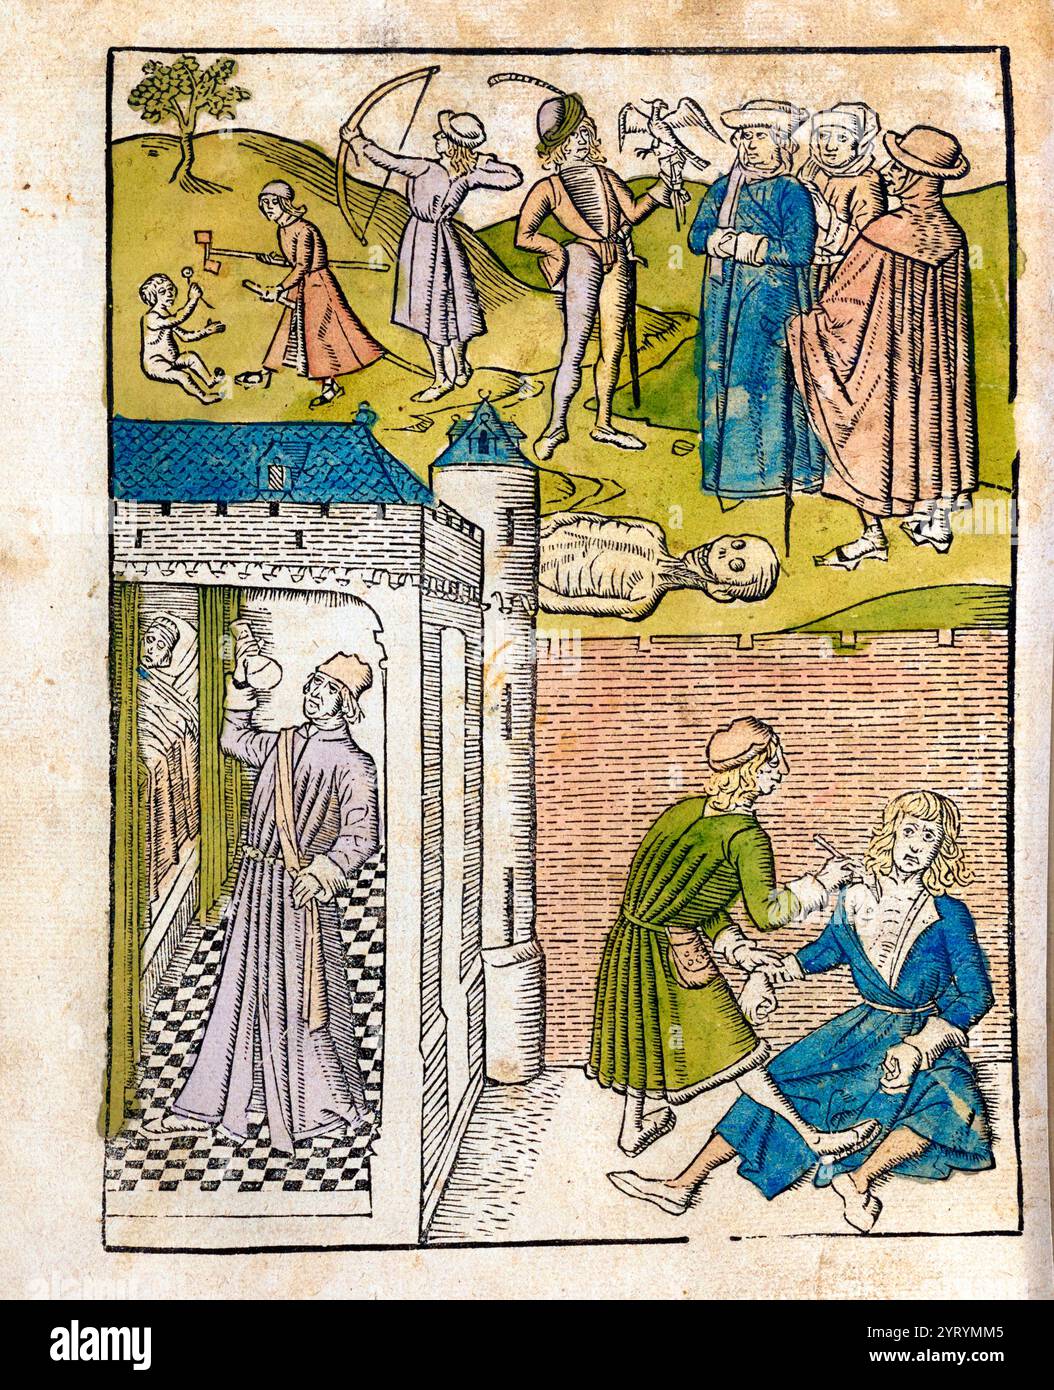 alamy
Image ID: 2SYRYMM5
www.alamy.com